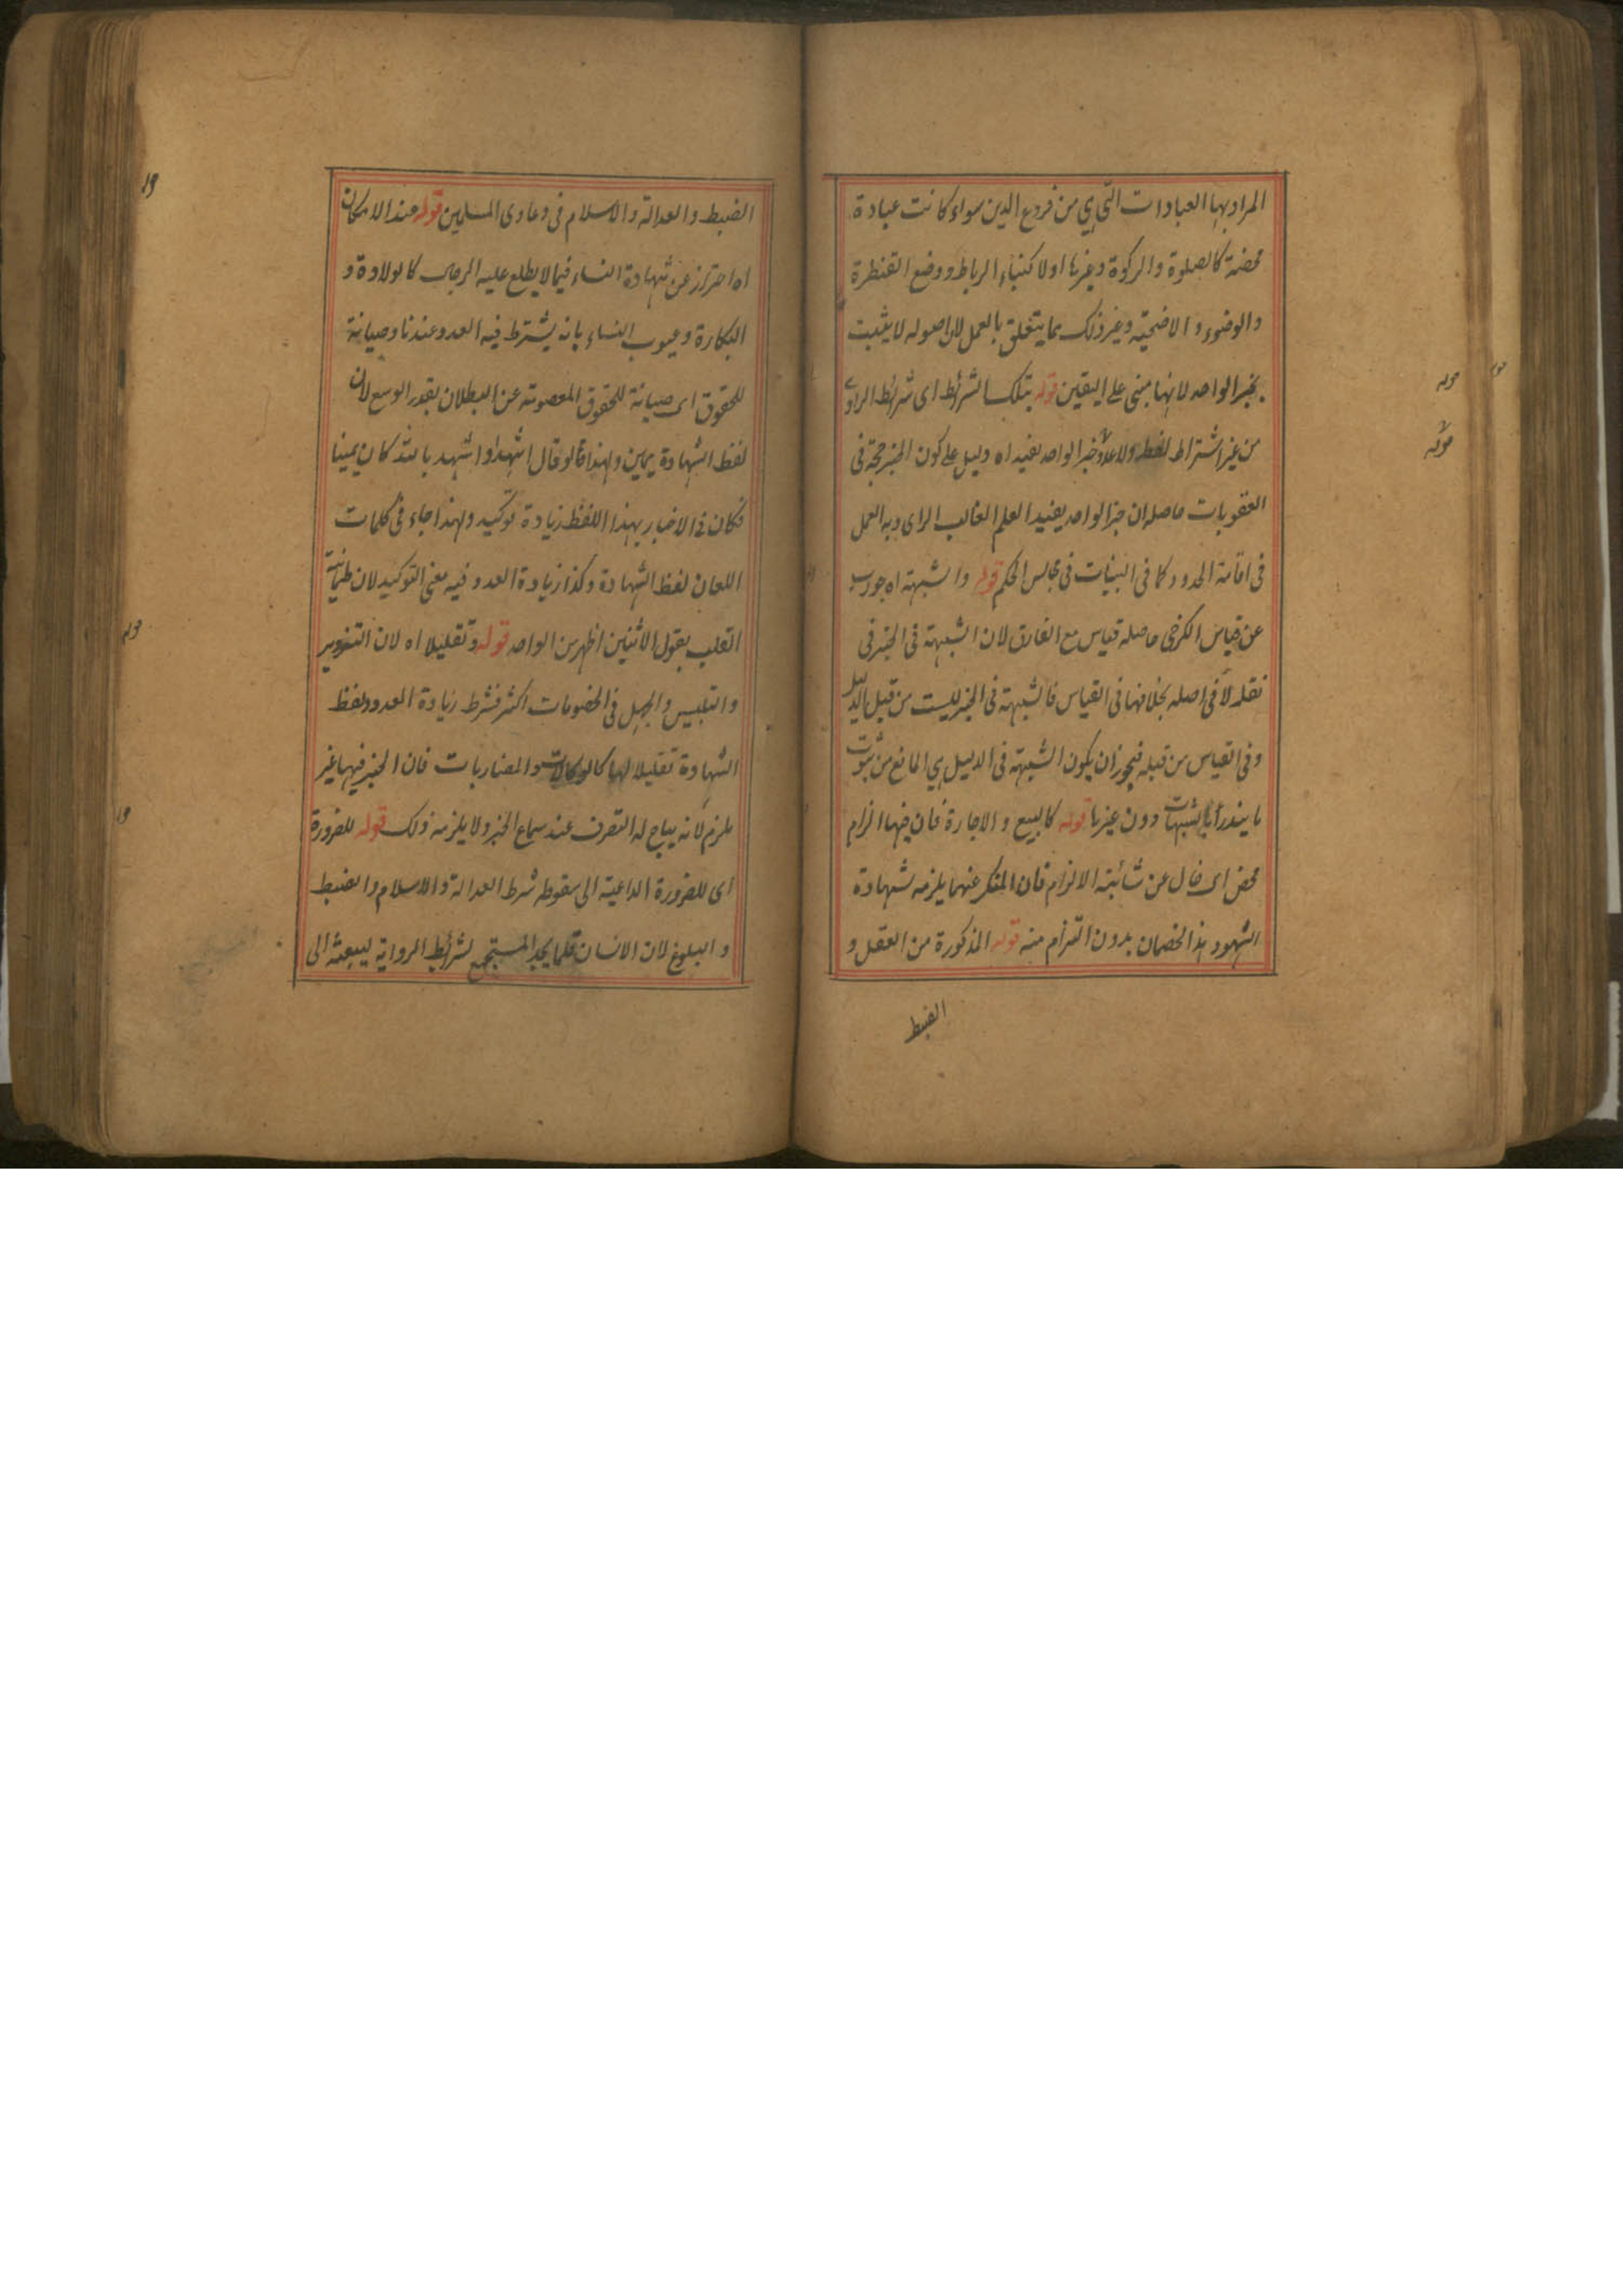 المراد بها العبادات التي هي من فروع الدين سواء كانت عبادة
محضة كالصلوة والزكوة وغيرها اولا كبناء الرباط ووضع القنطرة
والوضوء والاضحية وغير ذلك مما يتعلق بالعمل لان اصوله لا يثبت
بخبر الواحد لانها مبنى على اليقين قوله بتلك الشرائط اى شرائط الراوي
من غير اشتراط لفظ ولا عدد خبر الواحد يفيد اه دليل على كون الخبر حجة فى
العقوبات حاصله ان خبر الواحد يفيد العلم الغالب الراى وبه العمل
فى اقامة الحدود كما فى البينات فى مجالس الحكم قوله والشبهة اه جواب
عن قياس الكرخى حاصله قياس مع الفارق لان الشبهة فى الخبر فى
نقله لا فى اصله بخلافها فى القياس فالشبهة فى الخبر ليست من قبل الدليل
وفى القياس من قبله فيجوز ان يكون الشبهة فى الدليل هي المانع من ثبوت
ما يندرأ بالشبهات دون غيرها قوله كالبيع والاجارة فان فيها الزام
محض اى خال عن شائبة الالزام فان المنكر عنهما يلزمه شهادة
الشهود بذا الخصمان بدون التزام منه قوله المذكورة من العقل و
الضبط
الضبط والعدالة والاسلام فى دعاوى المسلمين قوله عند الامكان
اه احتراز عن شهادة النساء فيما لا يطلع عليه الرجال كالولادة و
البكارة وعيوب النساء بانه يشترط فيه العدد عندنا وصيانة
للحقوق اى صيانة للحقوق المعصومة عن البطلان بقدر الوسع لان
لفظ الشهادة يمين ولهذا قالو قال اشهد او اشهد بالله كان يمينا
فكان فى الاخبار بهذا اللفظ زيادة توكيد ولهذا جاء فى كلمات
اللعان لفظ الشهادة وكذا زيادة العدد فيه معنى التوكيد لان طمانية
القلب بقول الاثنين اظهر من الواحد قوله وتقليلا اه لان التزوير
والتلبيس والجهل فى الخصومات اكثر فشرط زيادة العدد ولفظ
الشهادة تقليلا لها كالوكالات والمضاربات فان الخبر فيها غير
ملزم لانه يباح له التصرف عند سماع الخبر ولا يلزمه ذلك قوله للضرورة
اى للضرورة الداعية الى سقوط شرط العدالة والاسلام والضبط
والبلوغ لان الانسان قلما يجد المستجمع لشرائط الرواية ليبعثه الى